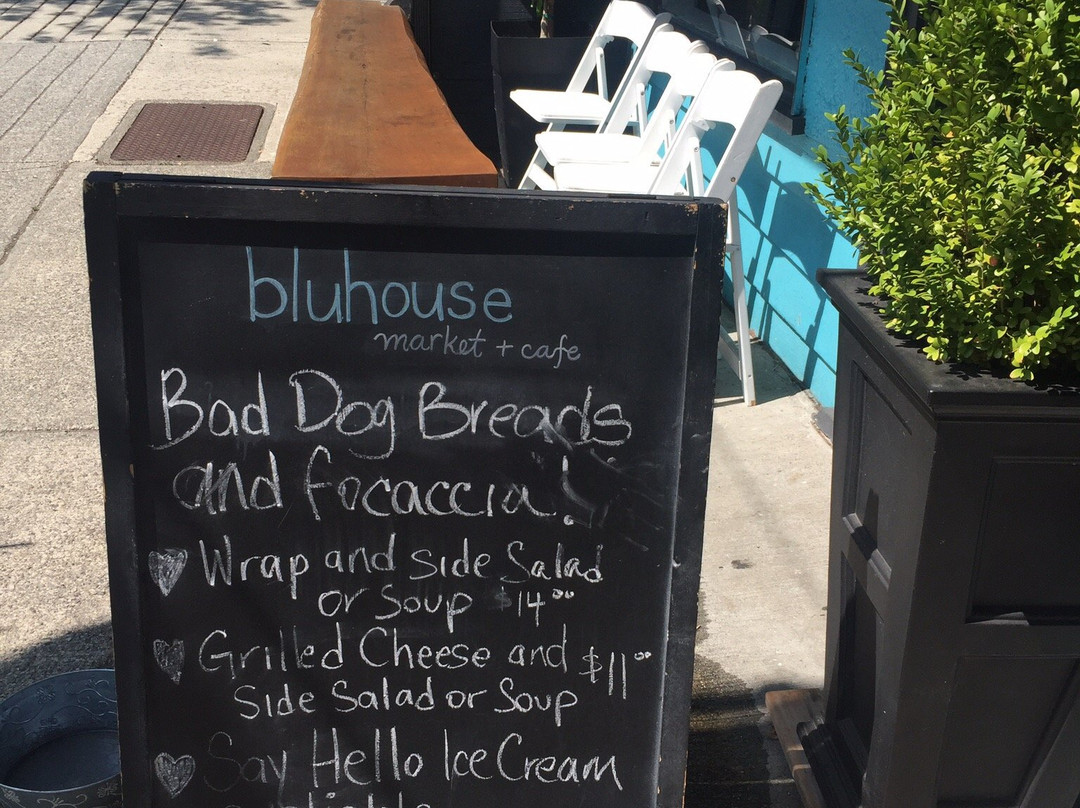 bluhouse
market + cafe
Bad Dog Breads
and focaccia!
Wrap and side Salad
or Soup $14.00
Grilled Cheese and $11.00
Side Salad or Soup
Say Hello Ice Cream